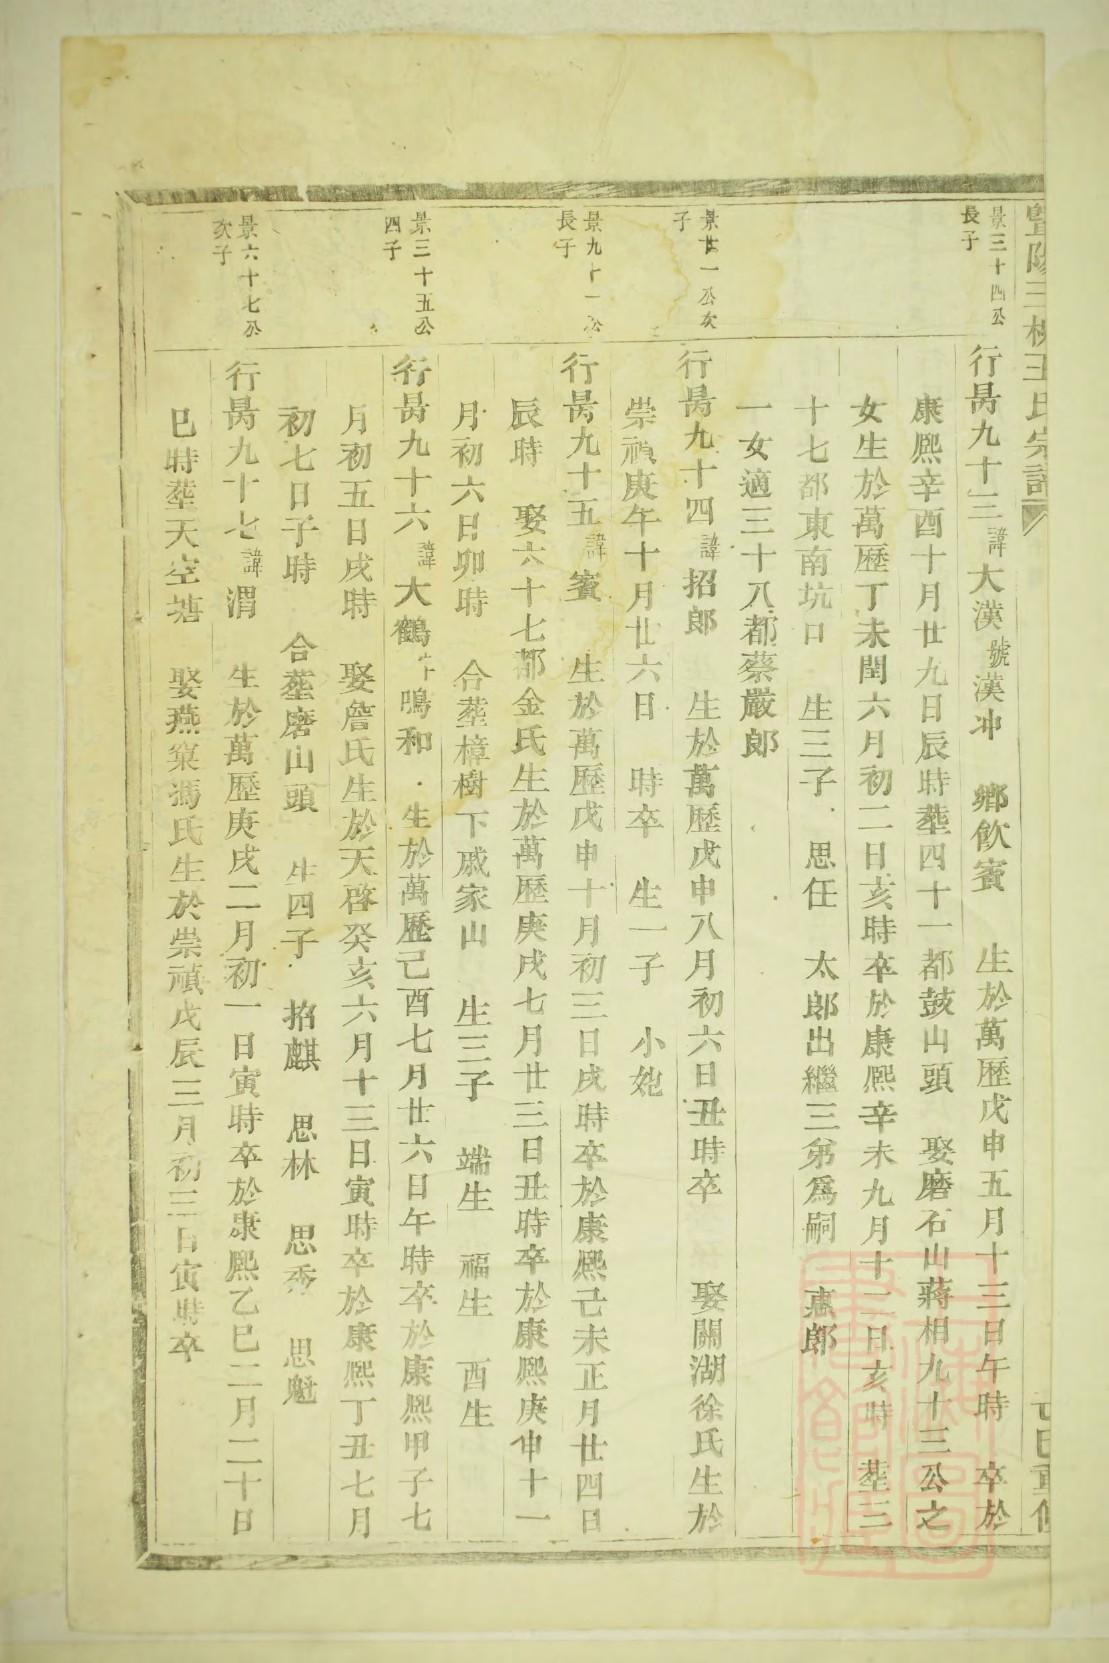 暨陽三橋王氏宗譜
己巳重修
景三十四公
長子
行昺九十三諱大漢號漢冲　鄉飲賓　生於萬歷戊申五月十三日午時　卒於
康熙辛酉十月廿九日辰時塟四十一都鼓山頭　娶磨石山蔣相九十三公之
女生於萬歷丁未閏六月初二日亥時卒於康熙辛未九月十二日亥時　塟三
十七都東南坑口　生三子　思任　太郎出繼三弟爲嗣　惠郎
一女適三十八都蔡嚴郎
景廿一公次
子
行昺九十四諱招郎　生於萬歷戊申八月初六日丑時卒　娶關湖徐氏生於
崇禎庚午十月廿六日　時卒　生一子　小
景九十一公
長子
行昺九十五諱賓　生於萬歷戊申十月初三日戌時卒於康熙己未正月廿四日
辰時　娶六十七都金氏生於萬歷庚戌七月廿三日丑時卒於康熙庚申十一
月初六日卯時　合塟樟樹下戚家山　生三子　端生　福生　酉生
景三十五公
四子
行昺九十六諱大鶴字鳴和　生於萬歷己酉七月廿六日午時卒於康熙甲子七
月初五日戌時　娶詹氏生於天啓癸亥六月十三日寅時卒於康熙丁丑七月
初七日子時　合塟磨山頭　生四子　招麒　思林　思秀　思魁
景六十七公
次子
行昺九十七諱渭　生於萬歷庚戌二月初一日寅時卒於康熙乙巳二月二十日
巳時塟天空塘　娶燕窠馮氏生於崇禎戊辰三月初三日寅時卒